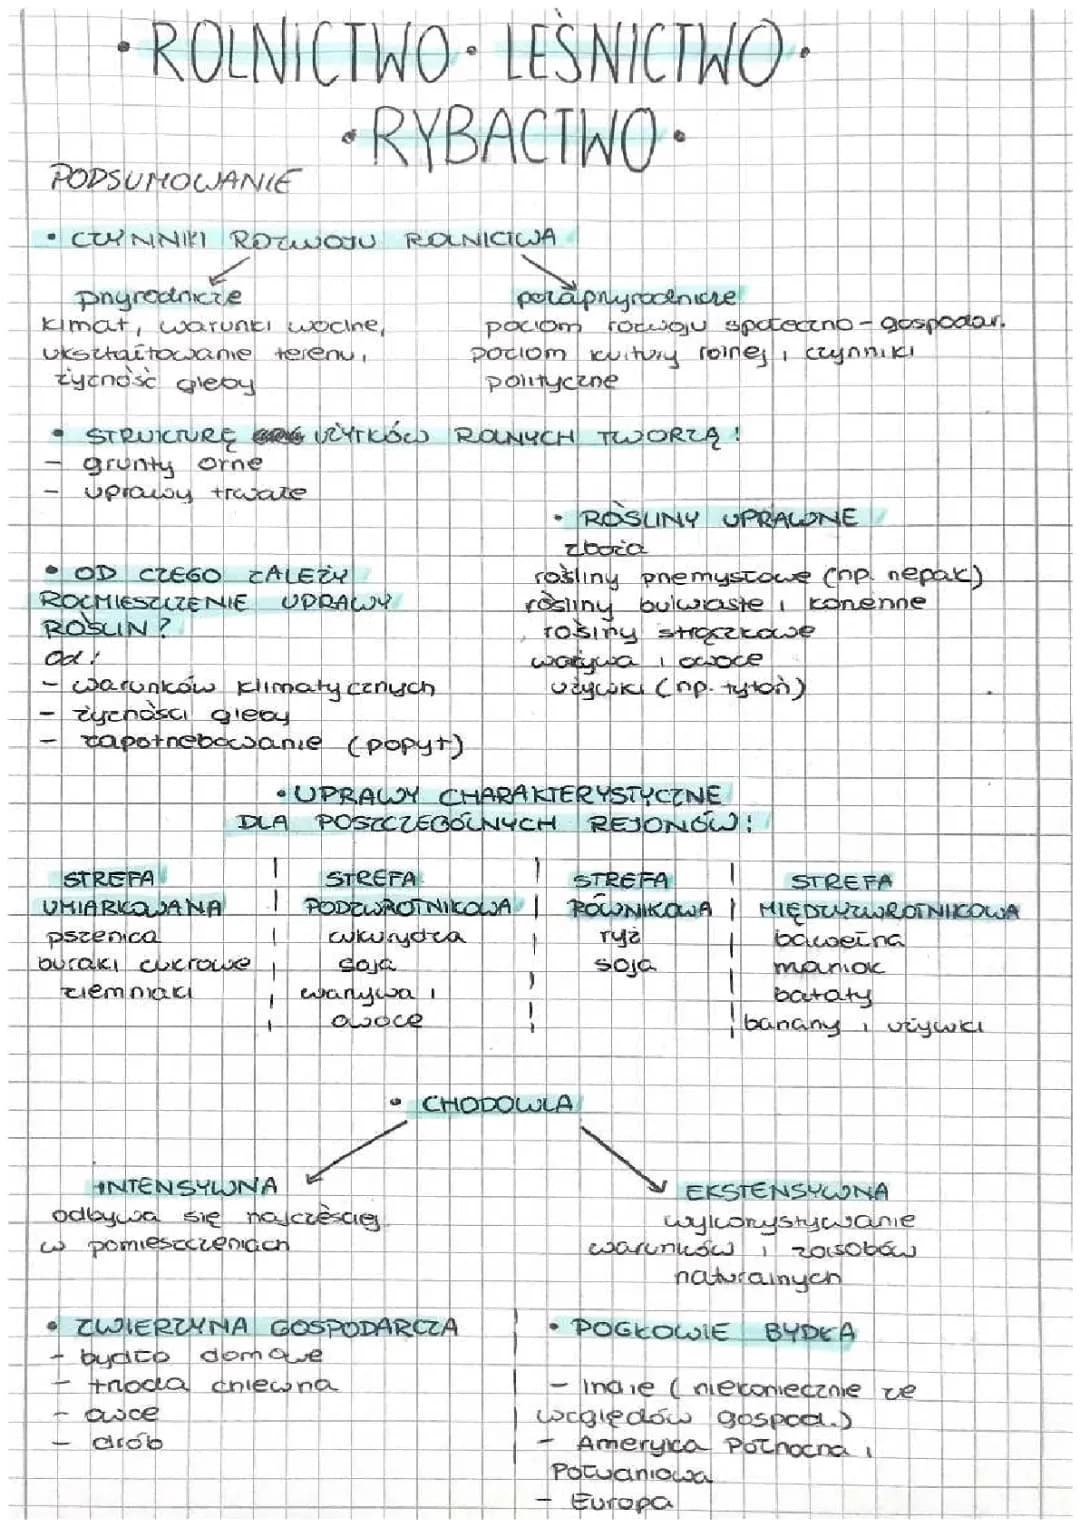 • ROLNICTWO • LEŚNICTWO •
• RYBACTWO •
PODSUMOWANIE
• CZYNNIKI ROZWOJU ROLNICTWA
przyrodnicze
klimat, warunki wodne,
ukształtowanie terenu,
żyzność gleby
pozaprzyrodnicze
poziom rozwoju społeczno-gospodar.
poziom kultury rolnej i czynniki
polityczne
• STRUKTURĘ UŻYTKÓW ROLNYCH TWORZĄ:
- grunty orne
- uprawy trwałe
• ROŚLINY UPRAWNE
zboża
rośliny przemysłowe (np. rzepak)
rośliny bulwiaste i korzenne
rośliny strączkowe
warzywa i owoce
używki (np. tytoń)
• OD CZEGO ZALEŻY
ROZMIESZCZENIE UPRAWY
ROŚLIN?
Od:
- warunków klimatycznych
- żyzności gleby
- zapotrzebowanie (popyt)
• UPRAWY CHARAKTERYSTYCZNE
DLA POSZCZEGÓLNYCH REJONÓW:
STREFA
UMIARKOWANA
pszenica
buraki cukrowe
ziemniaki
STREFA
PODZWROTNIKOWA
kukurydza
soja
warzywa i
owoce
STREFA
RÓWNIKOWA
ryż
soja
STREFA
MIĘDZYZWROTNIKOWA
bawełna
maniok
bataty
banany i używki
• CHODOWLA
INTENSYWNA
odbywa się najczęściej
w pomieszczeniach
EKSTENSYWNA
wykorzystywanie
warunków i zasobów
naturalnych
• ZWIERZYNA GOSPODARCZA
- bydło domowe
- trzoda chlewna
- owce
- drób
• POGŁOWIE BYDŁA
- Indie (niekoniecznie ze
względów gospod.)
- Ameryka Północna i
Południowa
- Europa